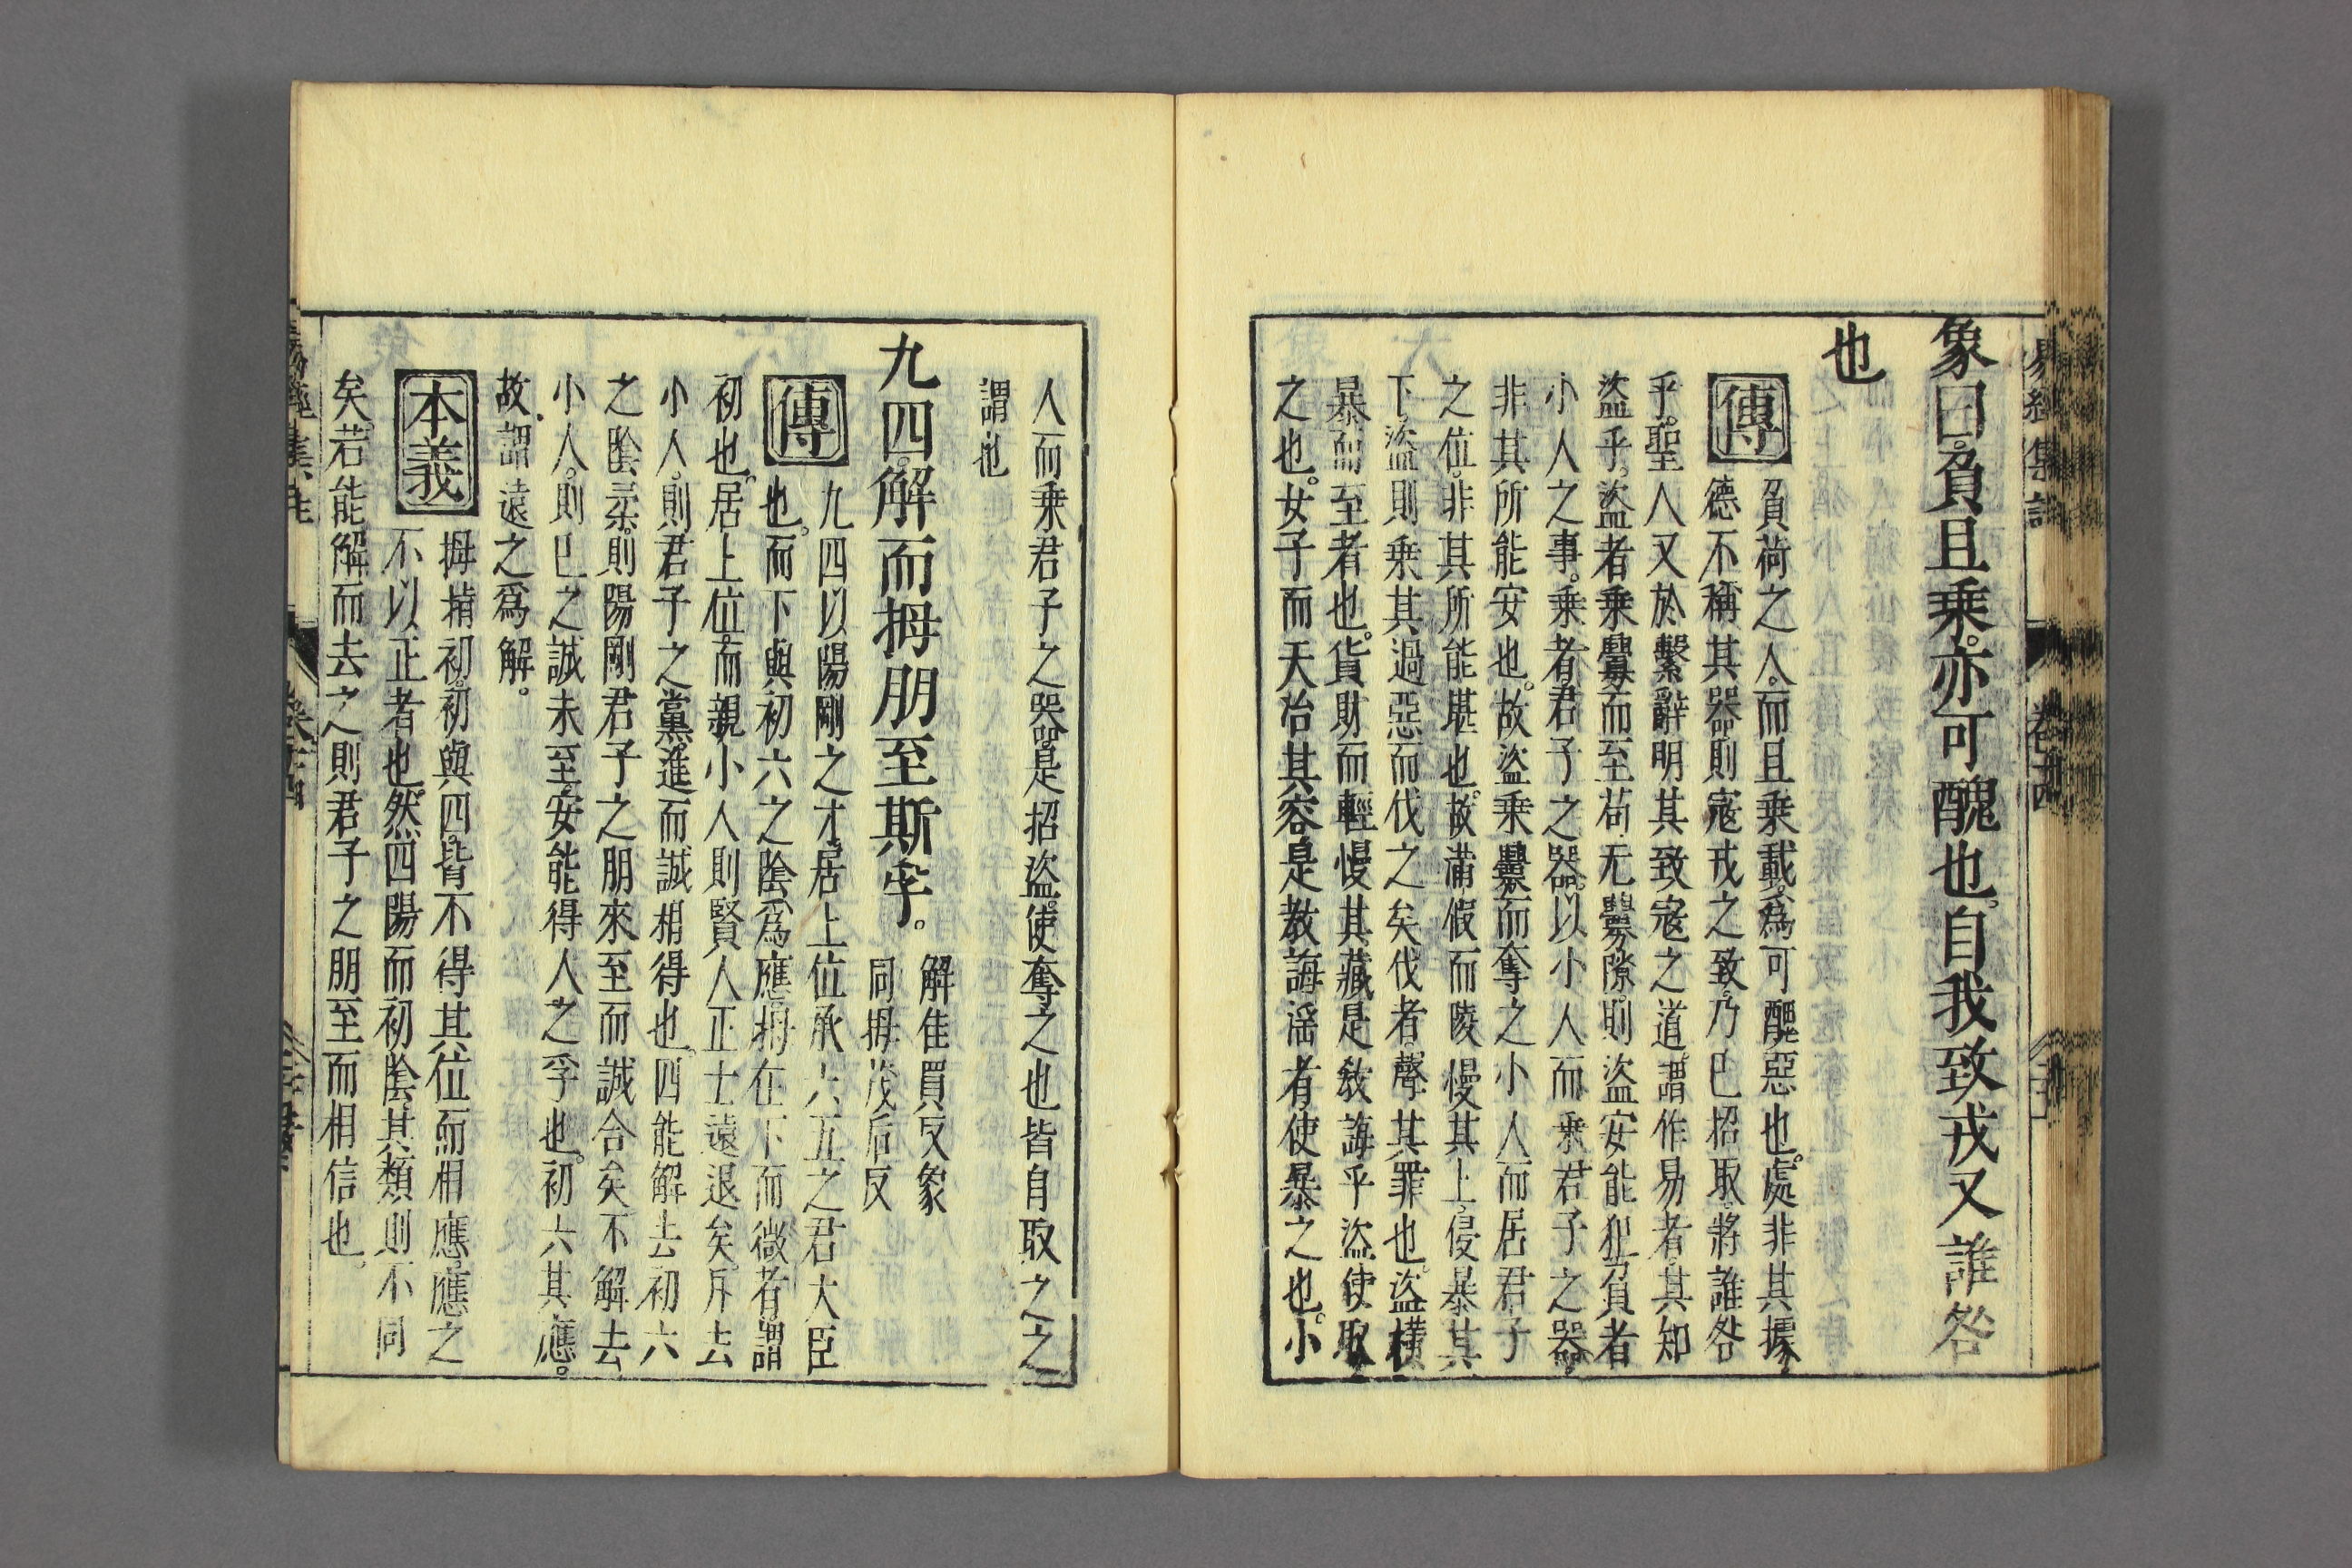 象曰負且乗亦可醜也自我致戎又誰咎
也
傳
負荷之人而且乗載爲可醜惡也處非其據
德不稱其器則寇戎之致乃已招取將誰咎
乎聖人又於繫辭明其致寇之道謂作易者其知
盜乎盜者乗釁而至苟无釁隙則盜安能犯負者
小人之事乗者君子之器以小人而乗君子之器
非其所能安也故盜乗釁而奪之小人而居君子
之位非其所能堪也故滿假而陵慢其上侵暴其
下盜則乗其過惡而伐之矣伐者聲其罪也盜橫
暴而至者也貨財而輕慢其藏是教誨乎盜使取
之也女子而夭冶其容是教誨淫者使暴之也小
人而乗君子之器是招盜使奪之也皆自取之之
謂也
九四解而拇朋至斯孚
解佳買反象
同拇茂后反
傳
九四以陽剛之才居上位承六五之君大臣
也而下與初六之陰爲應拇在下而微者謂
初也居上位而親小人則賢人正士遠退矣斥去
小人則君子之黨進而誠相得也四能解去初六
之陰柔則陽剛君子之朋來至而誠合矣不解去
小人則已之誠未至安能得人之孚也初六其應
故謂遠之爲解
本義
拇指初初與四皆不得其位而相應應之
不以正者也然四陽而初陰其類則不同
矣若能解而去之則君子之朋至而相信也